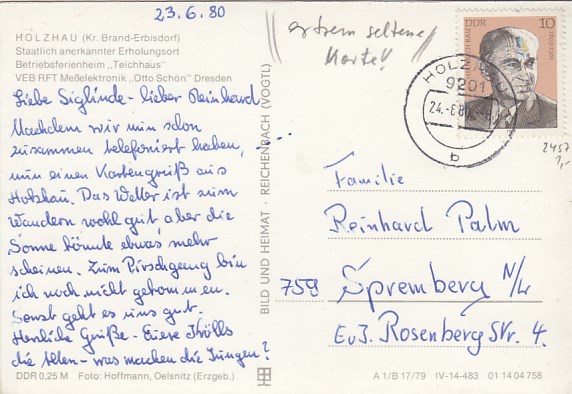 23.6.80
HOLZHAU (Kr. Brand-Erbisdorf)
Staatlich anerkannter Erholungsort
Betriebsferienheim „Teichhaus"
VEB RFT Meßelektronik „Otto Schön" Dresden
Liebe Siglinde - lieber Reinhard
Nachdem wir nun schon
zusammen telefoniert haben,
nun einen Kartengruß aus
Holzhau. Das Wetter ist zum
Wandern wohl gut, aber die
Sonne könnte etwas mehr
scheinen. Zum Pirschgang bin
ich noch nicht gekommen.
Sonst geht es uns gut.
Herzliche Grüße - Eure Krölls
die Alten - was machen die Jungen?
DDR 0,25 M Foto: Hoffmann, Oelsnitz (Erzgeb.)
BILD UND HEIMAT · REICHENBACH (VOGTL)
extrem seltene
Karte!
DDR 10
HOLZHAU
9201
24.-6.80
b
2457
1,-
Familie
Reinhard Palm
759 Spremberg N/L
E.v.J. Rosenberg Str. 4.
A 1/B 17/79 IV-14-483 01 14 04 758